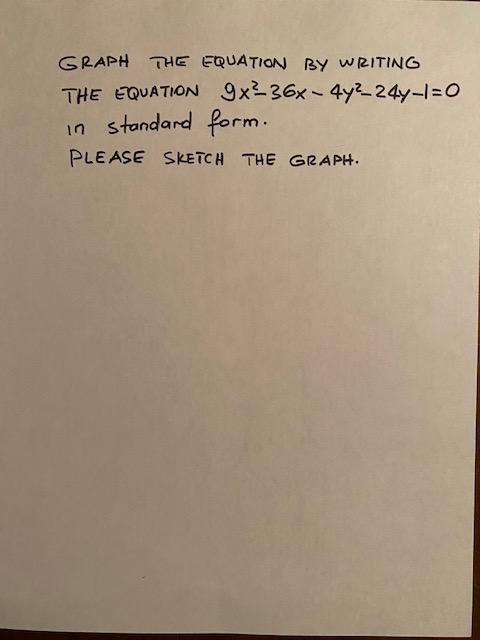 GRAPH THE EQUATION BY WRITING
THE EQUATION 9x²-36x-4y²-24y-1=0
in standard form.
PLEASE SKETCH THE GRAPH.